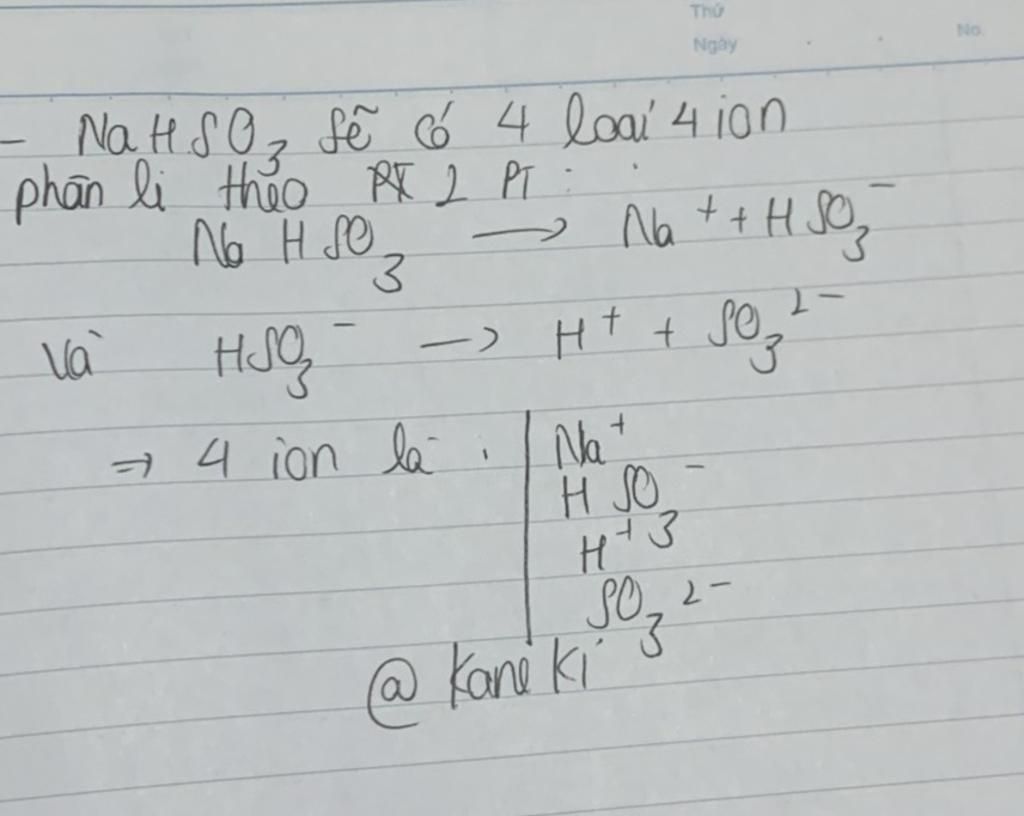 Thứ
Ngày
No.
- NaHSO₃ sẽ có 4 loại 4 ion
phân li theo 2 PT :
NaHSO₃ → Na⁺ + HSO₃⁻
Và HSO₃⁻ → H⁺ + SO₃²⁻
⇒ 4 ion là : Na⁺
HSO₃⁻
H⁺
SO₃²⁻
@ Kane ki